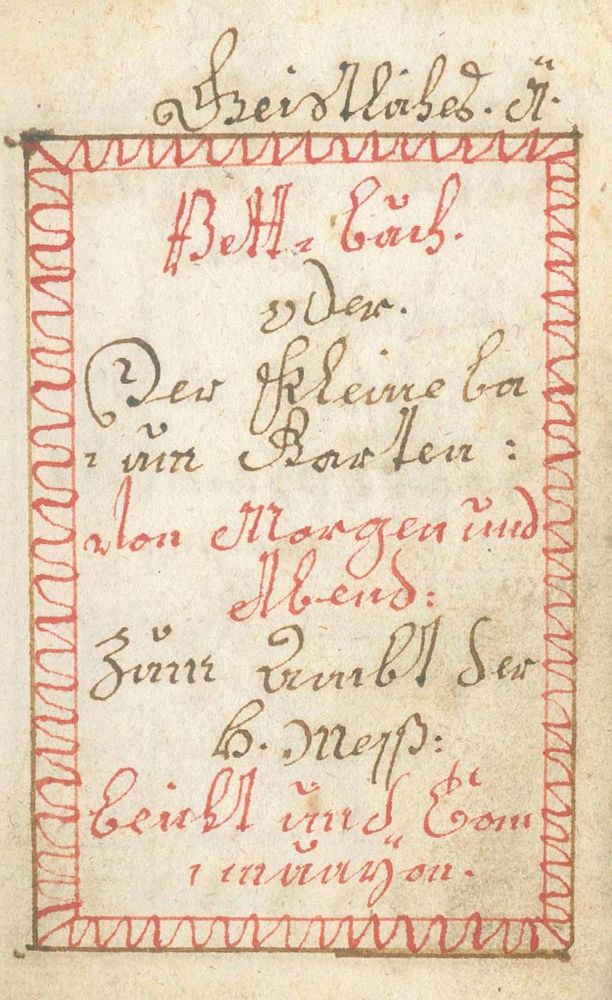 Geistliches. A.
Bett= büch.
oder.
Der Kleine ba
= um Garten:
Von Morgen und
Abend:
Züm Ambt der
H. Meß:
beicht und Com
= munion.